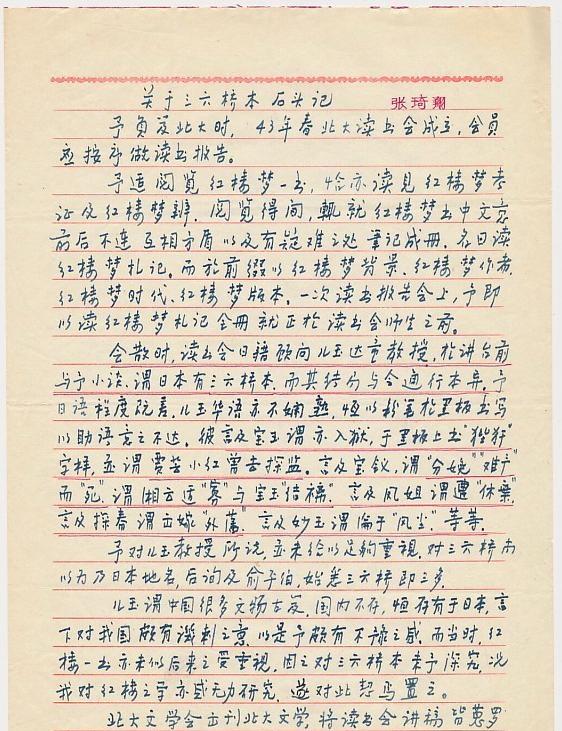 关于三六桥本石头记
张琦翔
予负笈北大时，43年春北大读书会成立，会员
应按序做读书报告。
予适阅览红楼梦一书，恰亦读见红楼梦考
证及红楼梦辨．阅览得间，辄就红楼梦书中文意
前后不连 互相矛盾以及有疑难之处 笔记成册．名曰读
红楼梦札记。而於前缀以红楼梦背景．红楼梦作者．
红楼梦时代．红楼梦版本．一次读书报告会上，予即
以读红楼梦札记全册就正於读书会师生之前。
会散时，读书会日籍顾问儿玉达童教授，於讲台前
与予小谈，谓日本有三六桥本，而其结局与今通行本异．予
日语程度既差．儿玉华语亦不娴熟，恒以粉笔於黑板书写
以助语言之不达．彼言及宝玉谓亦入狱，于黑板上书“狴犴”
字样，并谓 贾芸小红曾去探监．言及宝钗，谓“分娩”“难产”
而“死”．谓湘云适“寡”与宝玉“结褵”．言及凤姐谓遭“休弃”
言及探春谓云嫁“外藩”．言及妙玉谓沦于“风尘”．等等．
予对儿玉教授所说，并未给以足够重视．对三六桥本
以为乃日本地名，后询及俞子伯，始悉三六桥即三多．
儿玉谓中国很多文物古籍．国内不存，恒存有于日本，言
下对我国颇有讽刺之意．以是予颇有不豫之感．而当时，红
楼一书亦未似后来之受重视．因之对三六桥本未予深究．况
我对红楼之学亦感无力研究．遂对此恝焉置之。
北大文学会出刊北大文学，将读书会讲稿皆蒐罗